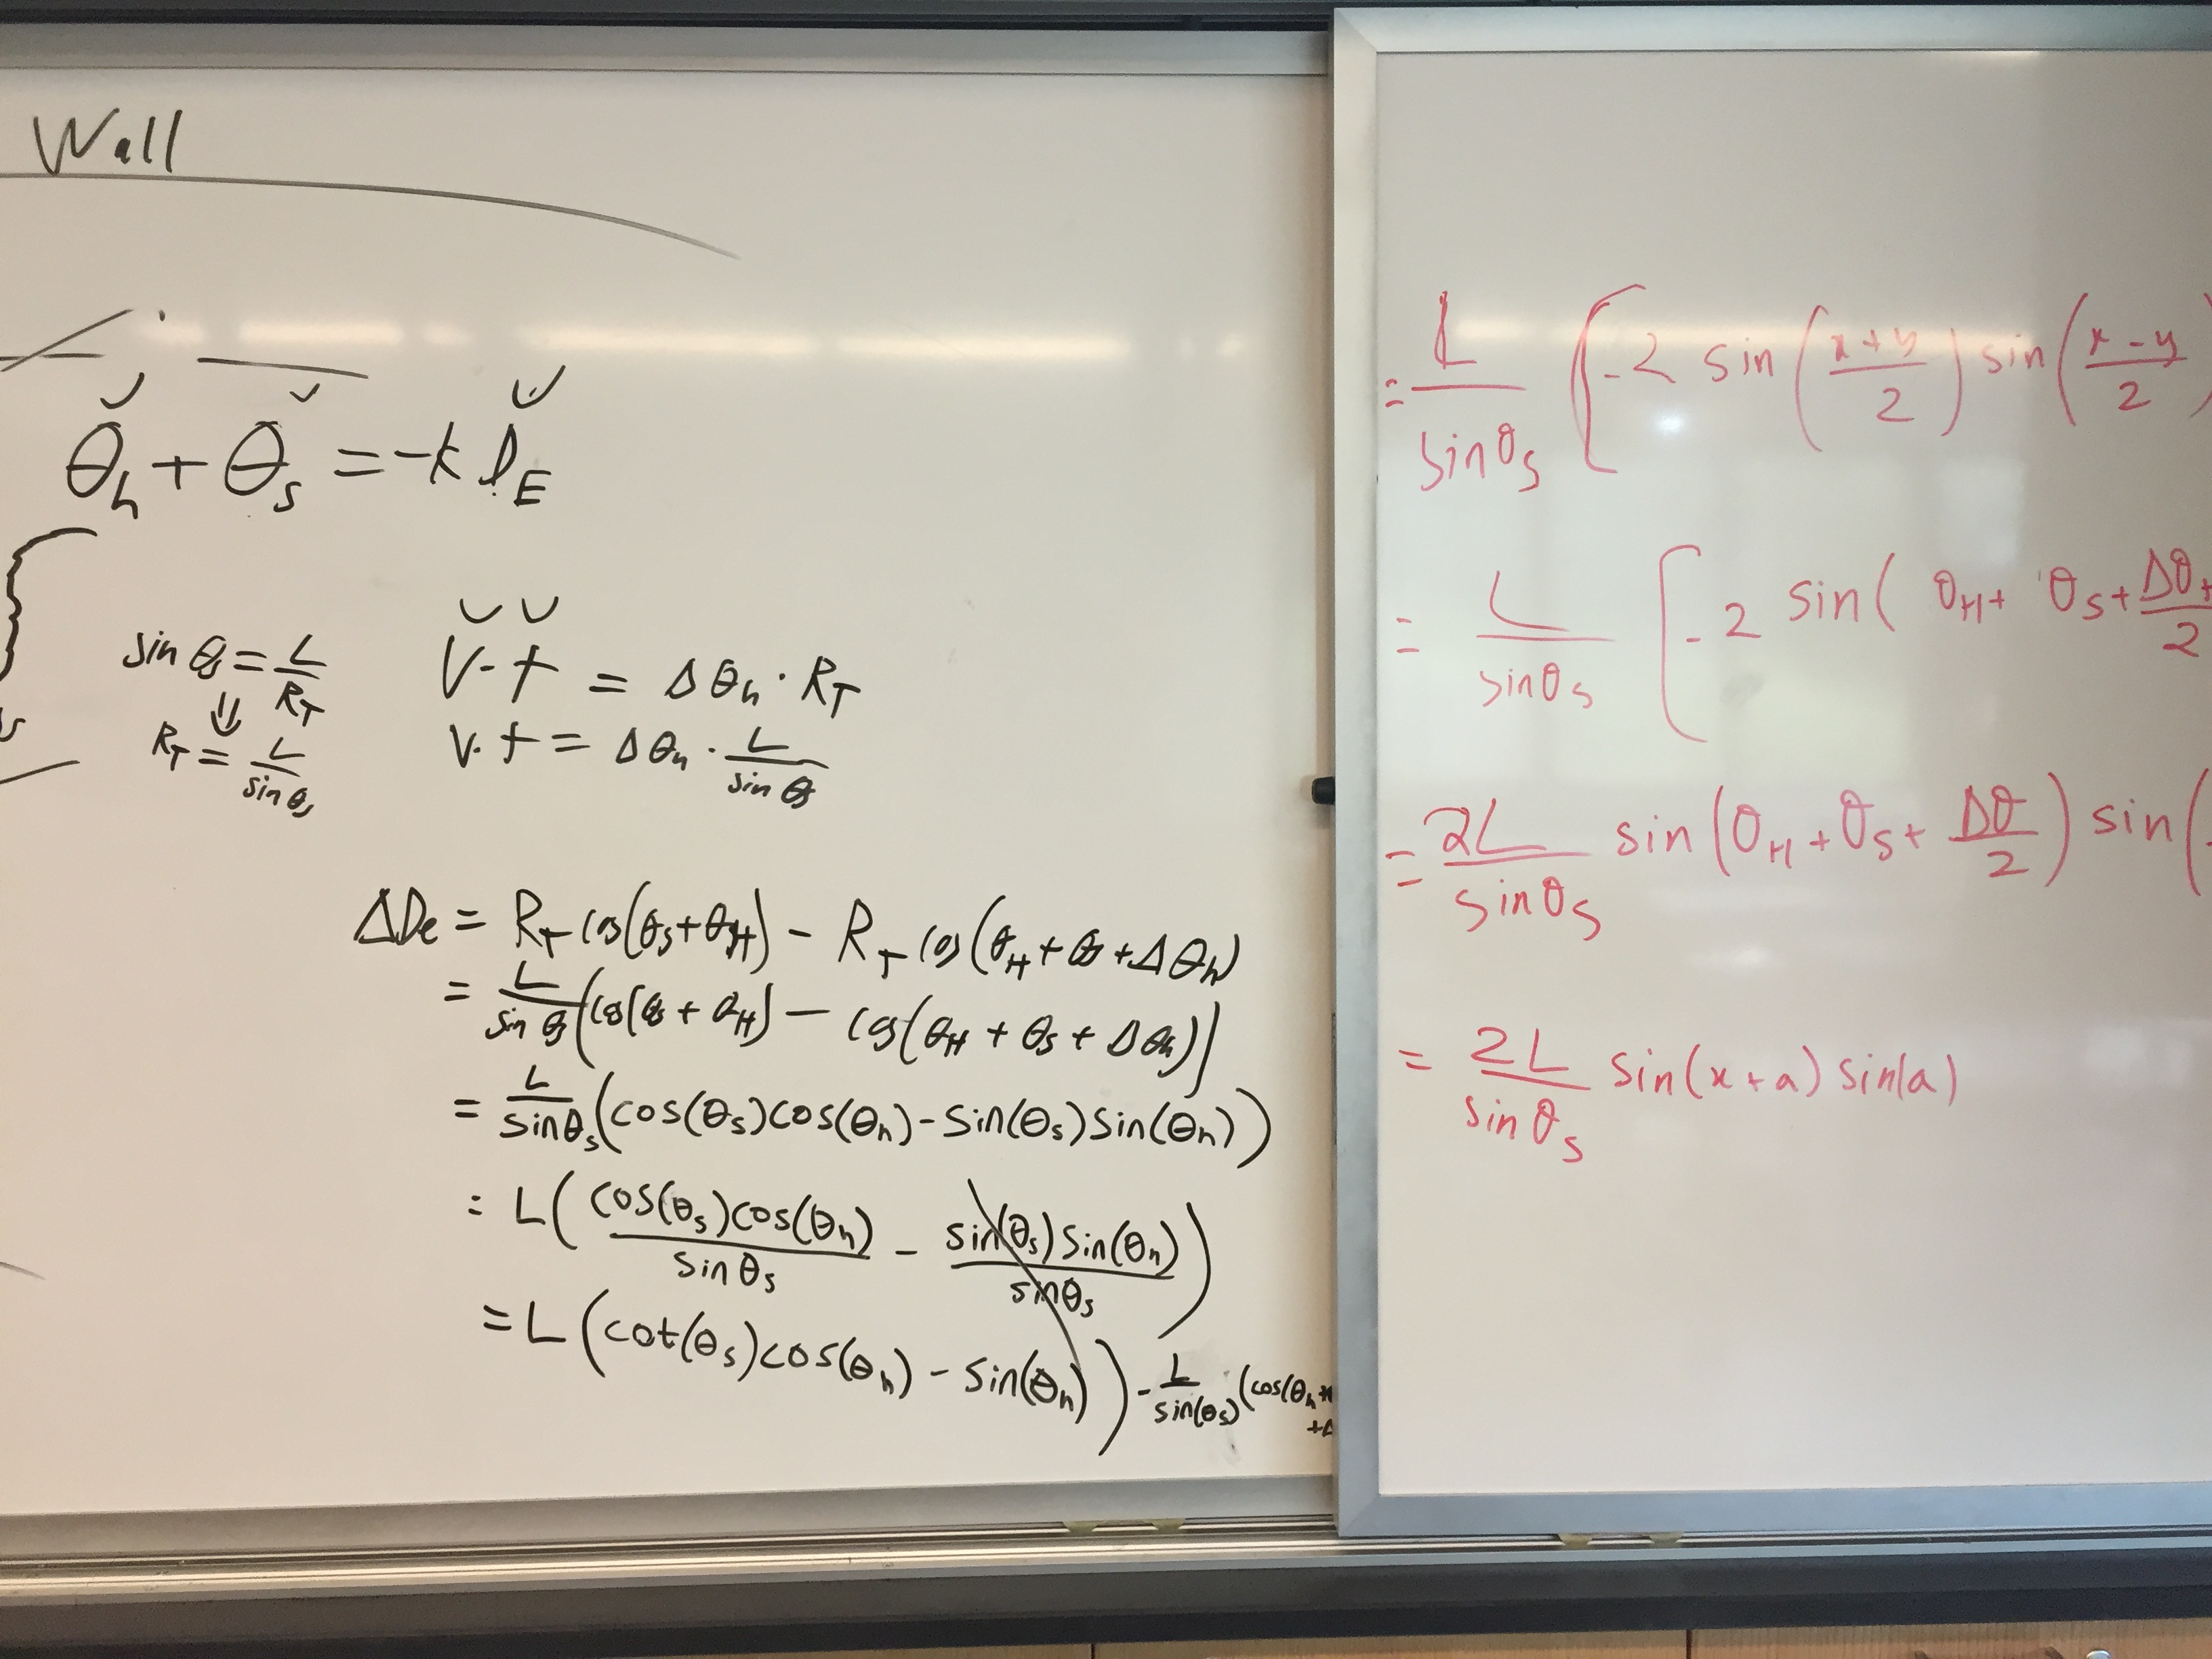 Wall
θh + θs = -k lE
sin θs = L/RT
⇓
RT = L/sin θs
V·t = Δθh · RT
V·t = Δθh · L/sin θs
ΔDe = RT cos(θs+θH) - RT cos(θH + θs + Δθh)
= L/sin θs (cos(θs + θH) - cos(θH + θs + Δθh))
= L/sinθs (cos(θs)cos(θh) - sin(θs)sin(θh))
= L( cos(θs)cos(θh)/sinθs - sin(θs)sin(θh)/sinθs )
= L (cot(θs)cos(θh) - sin(θh)) - L/sin(θs) (cos(θh+
+Δ
= L/sinθs [-2 sin(x+y/2) sin(x-y/2)
= L/sinθs [-2 sin( θH+ θs + Δθ+/2
= 2L/sinθs sin(θH + θs + Δθ/2) sin(
= 2L/sinθs sin(x+a) sin(a)